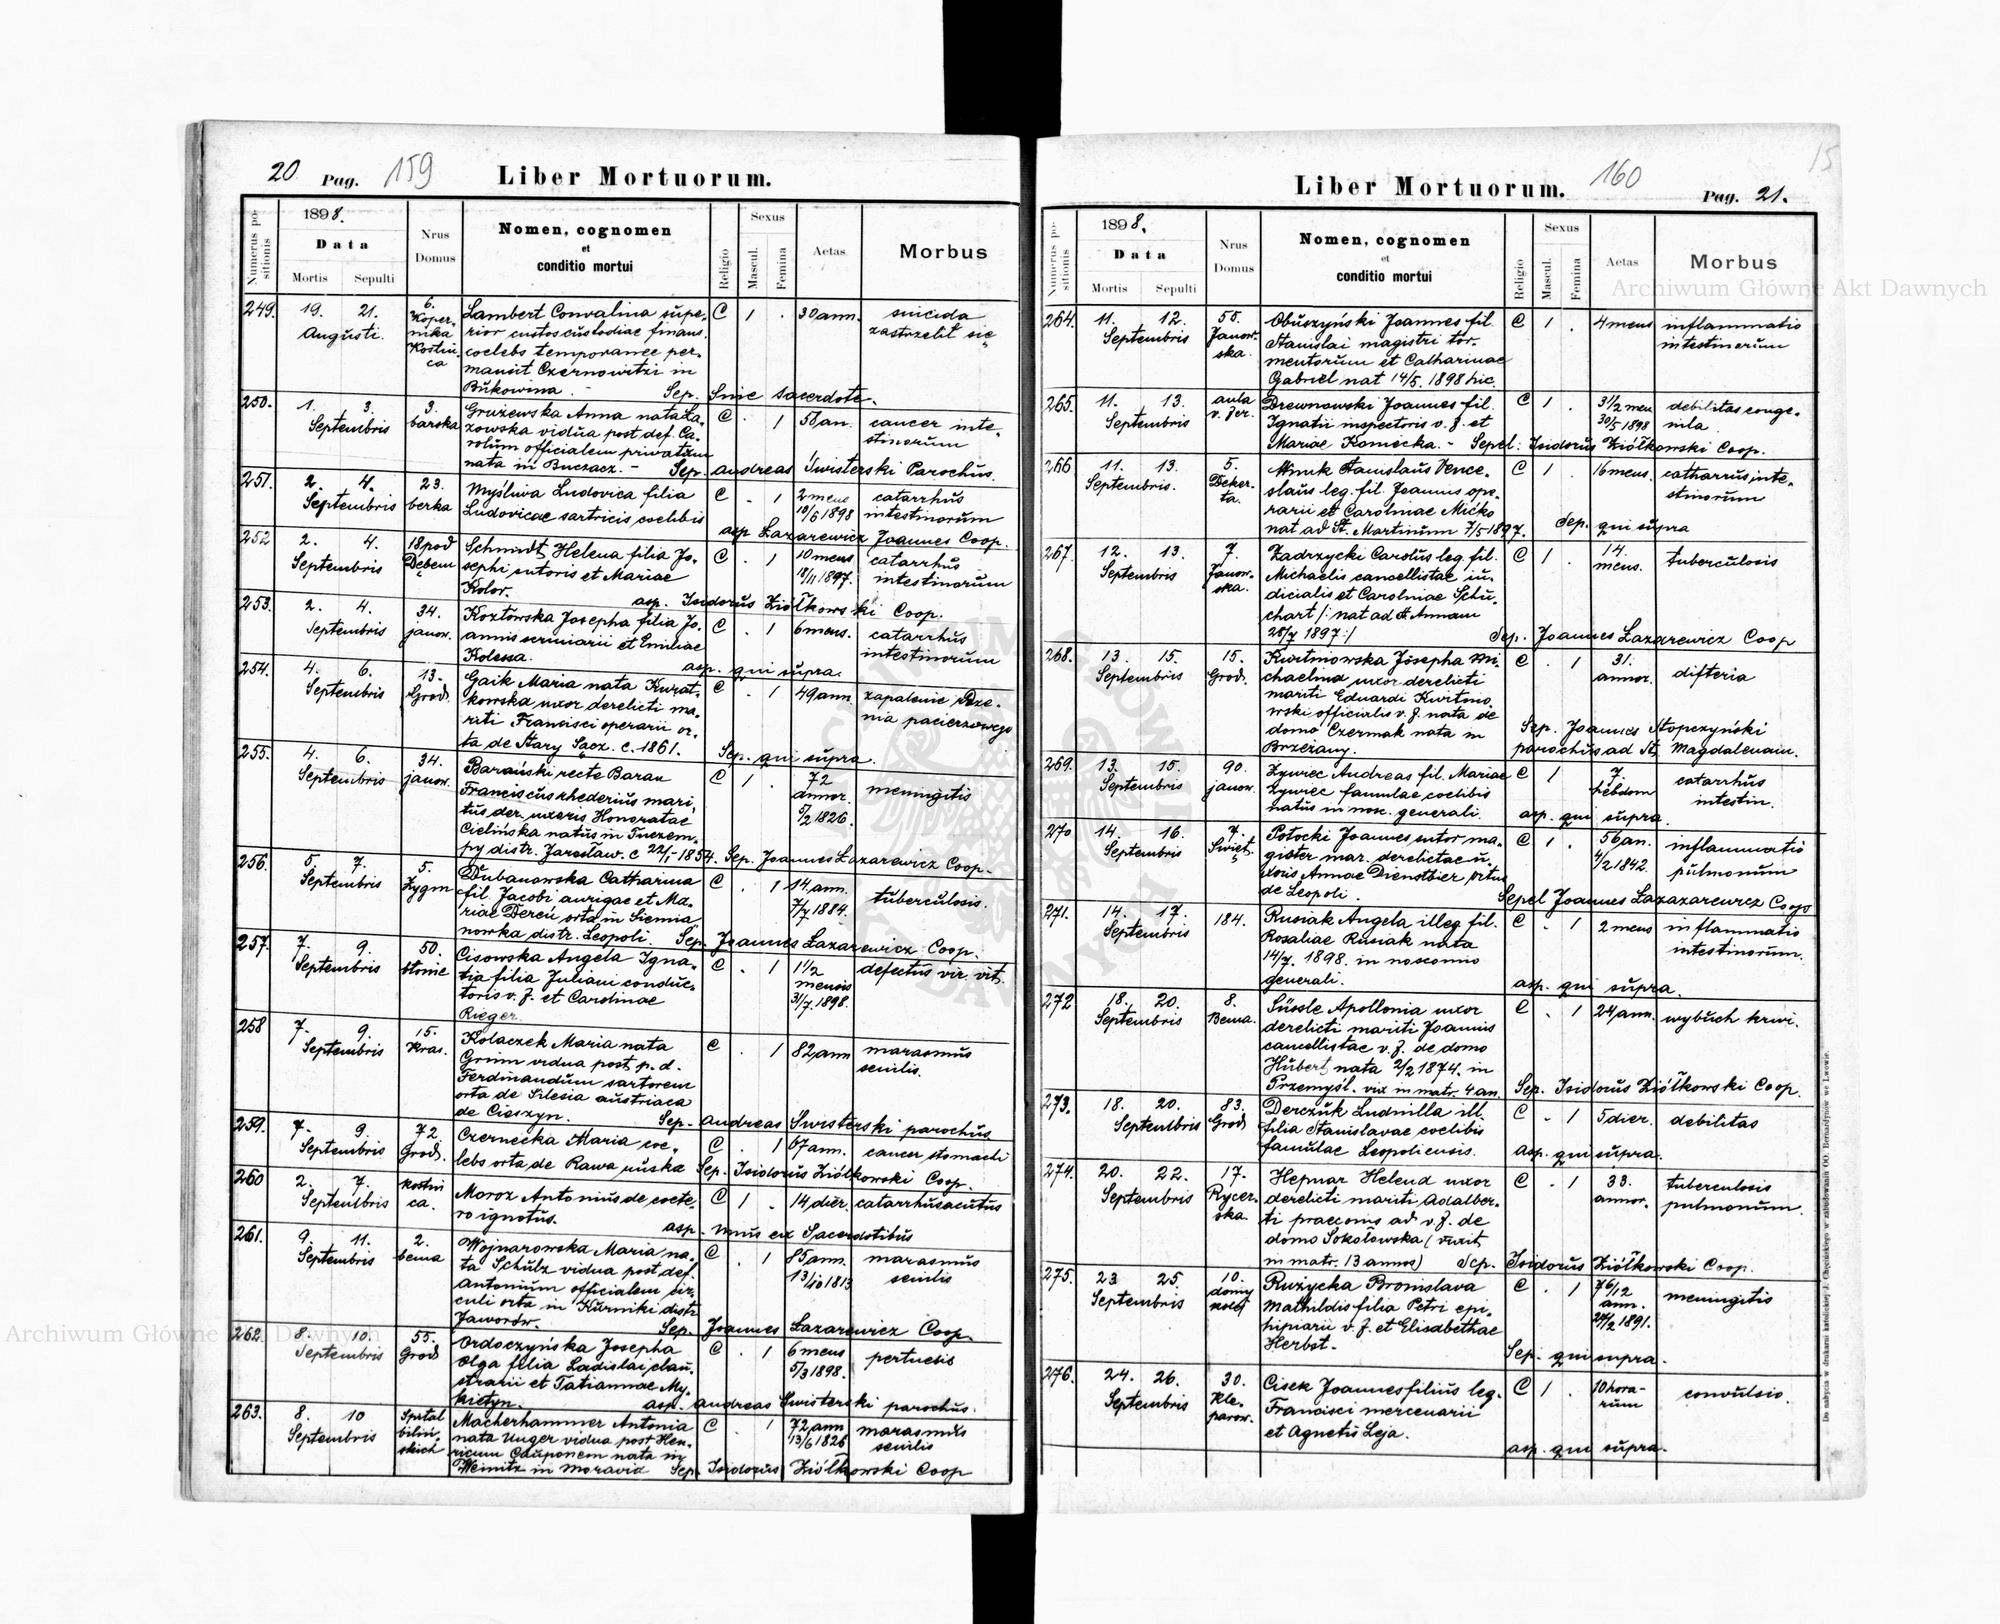 20 Pag. 159 Liber Mortuorum.
Numerus positionis
1898.
Data
Mortis Sepulti
Nrus Domus
Nomen, cognomen
et
conditio mortui
Religio
Sexus
Mascul. Femina
Aetas
Morbus
249. 19. 21. Augusti. 6. Kopernika Kostnica
Lambert Convalina supe-
rior custos custodiae finans.
coelebs temporanee per-
mansit Czernowitzi in
Bukowina. - Sep. Sine sacerdote.
C 1 . 30 ann. suicida
zastrzelił się
250. 1. 3. Septembris 3. barska
Gruzewska Anna nata Ła-
zowska vidua post def. Ca-
rolum officialem privatum
nata in Buczacz. - Sep. Andreas Swisterski Parochus.
C . 1 58 an. cancer inte-
stinorum
251. 2. 4. Septembris 23. berka
Myśliwa Ludovica filia
Ludovicae sartricis coelibis
C . 1 2 mens 10/6 1898 catarrhus
intestinorum
asp Lazarewicz Joannes Coop.
252 2. 4. Septembris 18 pod Dębem
Schmidt Helena filia Jo-
sephi sutoris et Mariae
Kolor. asp. Isidorus Ziółkowski Coop.
C . 1 10 mens 18/11 1897. catarrhus
intestinorum
253. 2. 4. Septembris 34. janow.
Kozłowska Josepha filia Jo-
annis scriniarii et Emiliae
Kolessa. asp. qui supra.
C . 1 6 mens. catarrhus
intestinorum
254. 4. 6. Septembris 13. Grod.
Gaik Maria nata Kurat-
kowska uxor derelicti ma-
riti Francisci operarii or-
ta de Stary Sącz. c. 1861. Sep. qui supra.
C . 1 49 ann. zapalenie rdze-
nia pacierzowego
255. 4. 6. Septembris 34. janow.
Barański recte Baran
Franciscus rhederius mari-
tus der. uxoris Honoratae
Cielińska natus in Tuczem-
py distr. Jarosław. c 22/1 1854. Sep. Joannes Lazarewicz Coop.
C 1 . 72 annor. 5/2 1826. meningitis
256 5. 7. Septembris 5. Zygm
Dubanowska Catharina
fil. Jacobi aurigae et Ma-
riae Dercu orta in Siemia
nowka distr. Leopoli. Sep. Joannes Lazarewicz Coop.
C . 1 14 ann. 7/7 1884. tuberculosis.
257. 7. 9. Septembris 50. błonie
Cisowska Angela Igna-
tia filia Juliani conduc-
toris v. f. et Carolinae
Rieger.
C . 1 1 1/2 mensis 31/7. 1898. defectus vir. vit.
258 7. 9. Septembris 15. Kras.
Kolaczek Maria nata
Grim vidua post p. d.
Ferdinandum sartorem
orta de Silesia austriaca
de Cieszyn. Sep. Andreas Swisterski parochus
C . 1 82 ann marasmus
senilis.
259. 7. 9. Septembris 72. Grod.
Czernecka Maria coe-
lebs orta de Rawa ruska Sep. Isidorus Ziółkowski Coop.
C . 1 67 ann. cancer stomachi
260 2. 7. Septembris kostni ca.
Moroz Antonius de coete-
ro ignotus. asp. unus ex Sacerdotibus
C 1 . 14 dier. catarrhus acutus
261. 9. 11. Septembris 2. bema
Wojnarowska Maria na-
ta Schulz vidua post def.
Antonium officialem cir-
culi orta in Kurniki distr.
Jaworów. Sep. Joannes Lazarewicz Coop.
C . 1 85 ann. 13/10 1813 marasmus
senilis
262. 8. 10. Septembris 55. Grod
Ordoczyńska Josepha
Olga filia Ladislai clau-
strarii et Tatiannae My-
kietyn. asp. Andreas Swisterski parochus.
C . 1 6 mens 5/3 1898. pertusis
263. 8. 10 Septembris Spital biliń- skich
Macherhammer Antonia
nata Unger vidua post Hen-
ricum Cauponem nata in
Weinitz in Moravia Sep. Isidorus Ziółkowski Coop
C . 1 72 ann 13/6 1826 marasmus
senilis
Liber Mortuorum. 160 Pag. 21. 15
Numerus positionis
1898.
Data
Mortis Sepulti
Nrus Domus
Nomen, cognomen
et
conditio mortui
Religio
Sexus
Mascul. Femina
Aetas
Morbus
264. 11. 12. Septembris 55. Janow- ska.
Obuszyński Joannes fil.
Stanislai magistri tor-
mentorum et Catharinae
Gabriel nat 14/5. 1898 hic.
C 1 . 4 mens inflammatio
intestinorum
265. 11. 13. Septembris aula v. fer.
Drewnowski Joannes fil.
Ignatii inspectoris v. f. et
Mariae Komecka. - Sepel: Isidorus Ziółkowski Coop.
C 1 . 3 1/2 men 30/5 1898 debilitas conge-
nita
266 11. 13. Septembris. 5. Deker- ta.
Mnuk Stanislaus Vence-
slaus leg. fil. Joannis ope-
rarii et Carolinae Micko
nat ad St. Martinum 7/5 1897. Sep. qui supra
C 1 . 16 mens. catharrus inte-
stinorum
267. 12. 13. Septembris 7. Janow- ska.
Zadrzycki Carolus leg. fil.
Michaelis cancellistae iu-
dicialis et Carolinae Schu-
chart /: nat ad St Annam
25/7 1897 :/ Sep. Joannes Lazarewicz Coop
C 1 . 14. mens. tuberculosis
268. 13. 15. Septembris 15. Grod.
Kwitniowska Josepha Mi-
chaelina uxor derelicti
mariti Eduardi Kwitnio-
wski officialis v. f. nata de
domo Czermak nata in
Brzeżany.
C . 1 31. annor. difteria
Sep. Joannes Stopczyński
parochus ad St. Magdalenam.
269. 13. 15. Septembris 90. janow.
Zywiec Andreas fil. Mariae
Zywiec famulae coelibis
natus in nosc. generali. asp. qui supra.
C 1 7. hebdom catarrhus
intestin.
270 14. 16. Septembris 7. Święt.
Potocki Joannes sutor ma-
gister mar. derelictae u-
xoris Annae Dienstbier ortus
de Leopoli. Sepel Joannes Lazazarewicz Coop
C 1 . 56 an. 4/2 1842. inflammatio
pulmonum
271. 14. 17. Septembris 184.
Rusiak Angela illeg. fil.
Rosaliae Rusiak nata
14/7. 1898. in noscomio
generali. asp. qui supra.
C . 1 2 mens inflammatio
intestinorum.
272 18. 20. Septembris 8. Bema.
Süssle Apollonia uxor
derelicti mariti Joannis
cancellistae v. f. de domo
Hubert nata 2/2 1874. in
Przemyśl. vix. in matr. 4 an. Sep. Isidorus Ziółkowski Coop.
C . 1 24 ann. wybuch krwi.
273. 18. 20. Septembris 83. Grod
Derczuk Ludmilla ill.
filia Stanislavae coelibis
famulae Leopoliensis. asp. qui supra.
C . 1 5 dier. debilitas
274. 20. 22. Septembris 17. Rycer- ska.
Hepnar Helena uxor
derelicti mariti Adalber-
ti praeconis ad v. f. de
domo Sokolowska (vixit
in matr. 13 annos) Sep. Isidorus Ziółkowski Coop.
C . 1 33. annor. tuberculosis
pulmonum.
275. 23 25. Septembris 10. domy kolej
Ruzycka Bronislava
Mathildis filia Petri epi-
hipiarii v. f. et Elisabethae
Herbst. Sep. qui supra.
C . 1 7 6/12 ann. 24/2 1891. meningitis
276. 24. 26. Septembris 30. Kle- parow.
Cisek Joannes filius leg.
Francisci mercenarii
et Agnetis Leja. asp. qui supra.
C 1 . 10 hora- rum convulsio.
Do nabycia w drukarni katolickiej J. Chęcińskiego w zabudowaniu OO. Bernardynów we Lwowie.
Archiwum Główne Akt Dawnych
Archiwum Główne Akt Dawnych